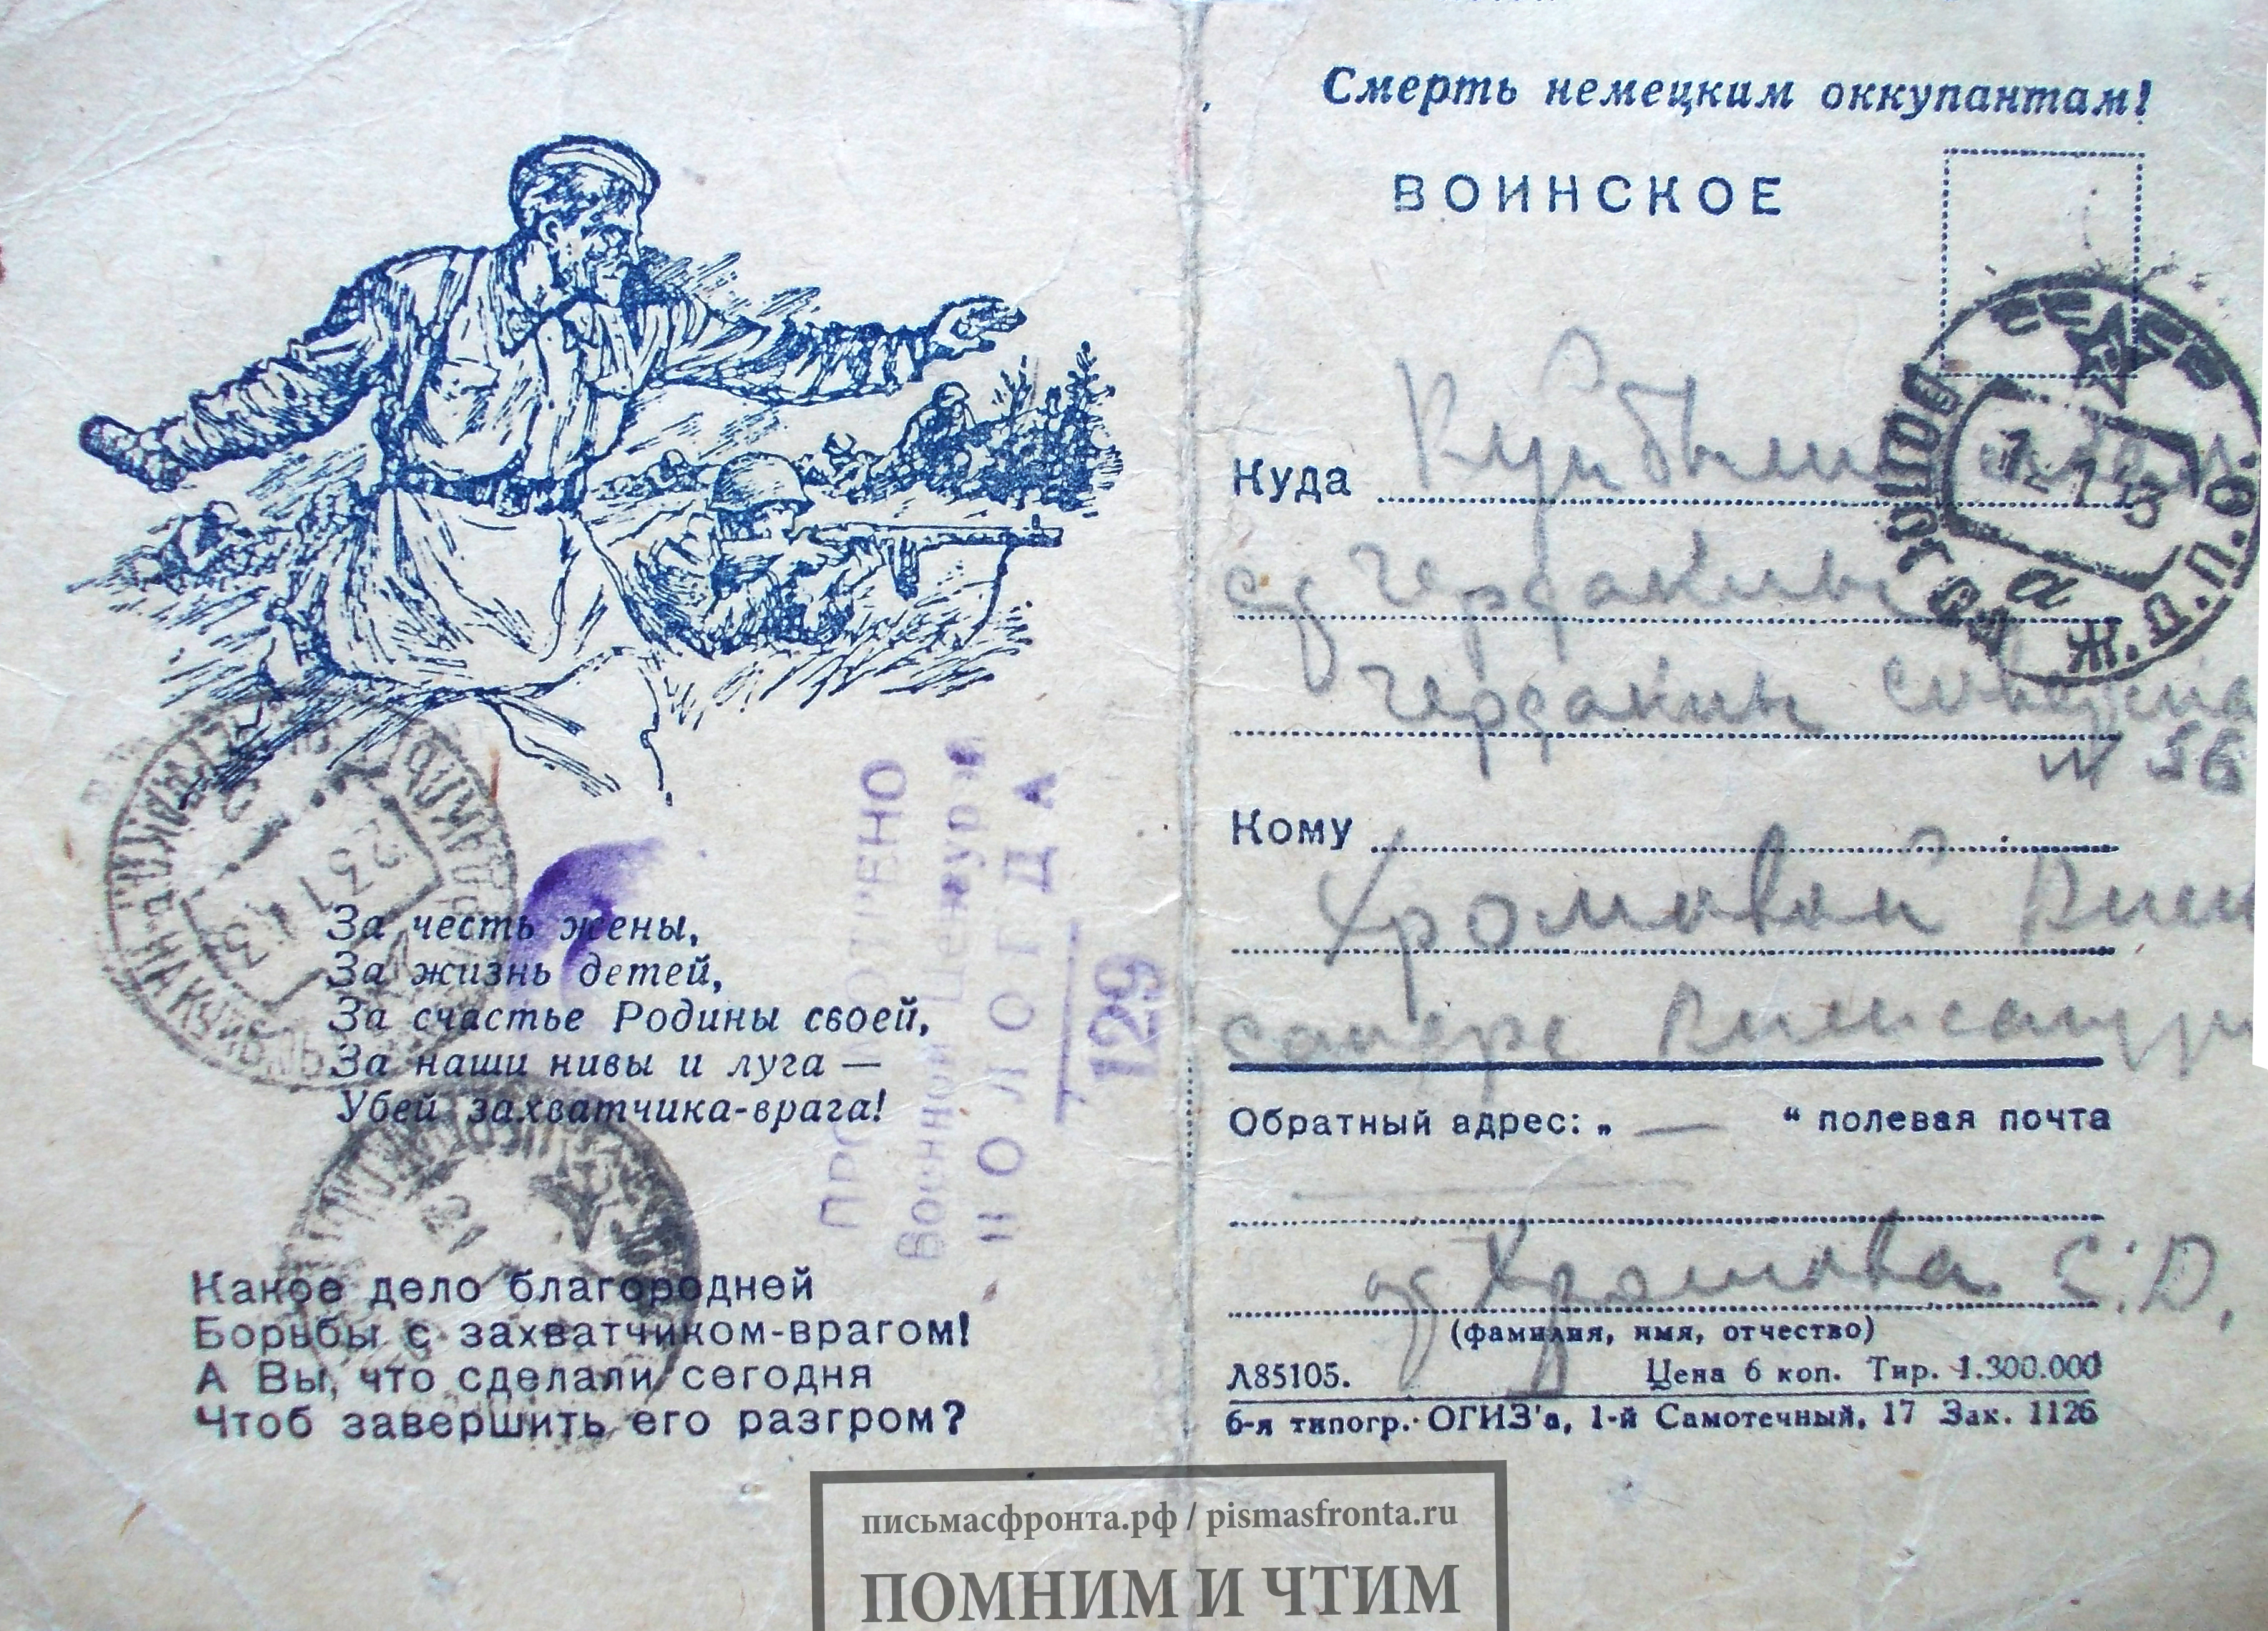 За честь жены,
За жизнь детей,
За счастье Родины своей,
За наши нивы и луга —
Убей захватчика-врага!
Какое дело благородней
Борьбы с захватчиком-врагом!
А Вы, что сделали сегодня
Чтоб завершить его разгром?
ПРОСМОТРЕНО
Военной Цензурой
ВОЛОГДА
129
Смерть немецким оккупантам!
ВОИНСКОЕ
ВОЛОГДА Ж.Д.П.О.
а
Куда Куйбышевская
ст Чердаклы
Чердаклы
№ 56
Кому
Хромовой Алек
сандре Александр
Обратный адрес: „ — “ полевая почта
от Хромова С.Д.
(фамилия, имя, отчество)
Л85105. Цена 6 коп. Тир. 1.300.000
6-я типогр. ОГИЗ'а, 1-й Самотечный, 17 Зак. 1126
письмасфронта.рф / pismasfronta.ru
ПОМНИМ И ЧТИМ